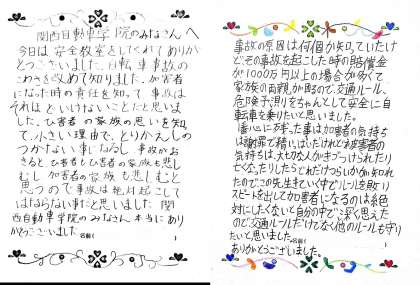 関西自動車学院のみなさんへ
今日は安全教室をしてくれてありが
とうございました。自転車事故の
こわさを改めて知りました。加害者
になった時の責任を知って事故は
それほどいけないことだと思いま
した。ひ害者の家族の思いを知っ
て、小さい理由で、とりかえしの
つかない事になるし、事故がお
きるとひ害者もひ害者の家族も悲し
むし加害者の家族も悲しむと
思うので事故は絶対起こして
はならない事だと思いました。関
西自動車学院のみなさん本当にあり
がとうございました 名前(
事故の原因は何個か知っていたけ
どその事故を起こした時の賠償金
が1000万円以上の場合が多くて
家族の両親が困るので交通ルール、
危険予測りをちゃんとして安全に自
転車を乗りたいと思いました。
一番心に残った事は加害者の気持ち
は謝罪で精いっぱいだけれど被害者の
気持ちは、大切な人がきづつけられたり
亡くなったりしたらどれだけつらいかが知れ
たのでこの先生きていく中でルールを破り
スピードを出して加害者になるのは絶
対にしたくないと自分の中で深く思えた
ので交通ルールだけでなく他のルールも守り
たいと思いました。 名前(
ありがとうございました。